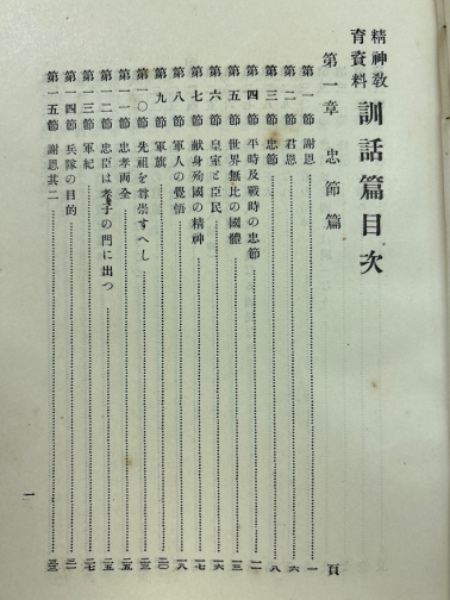 精神教育資料 訓話篇目次
第一章 忠節篇 頁
第一節 謝恩 一
第二節 君恩 六
第三節 忠節 八
第四節 平時及戰時の忠節 一一
第五節 世界無比の國體 一三
第六節 皇室と臣民 一六
第七節 献身殉國の精神 一七
第八節 軍人の覺悟 一八
第九節 軍旗 二〇
第一〇節 先祖を尊崇すへし 二三
第一一節 忠孝両全 二五
第一二節 忠臣は孝子の門に出つ 二五
第一三節 軍紀 二七
第一四節 兵隊の目的 三一
第一五節 謝恩其二
一